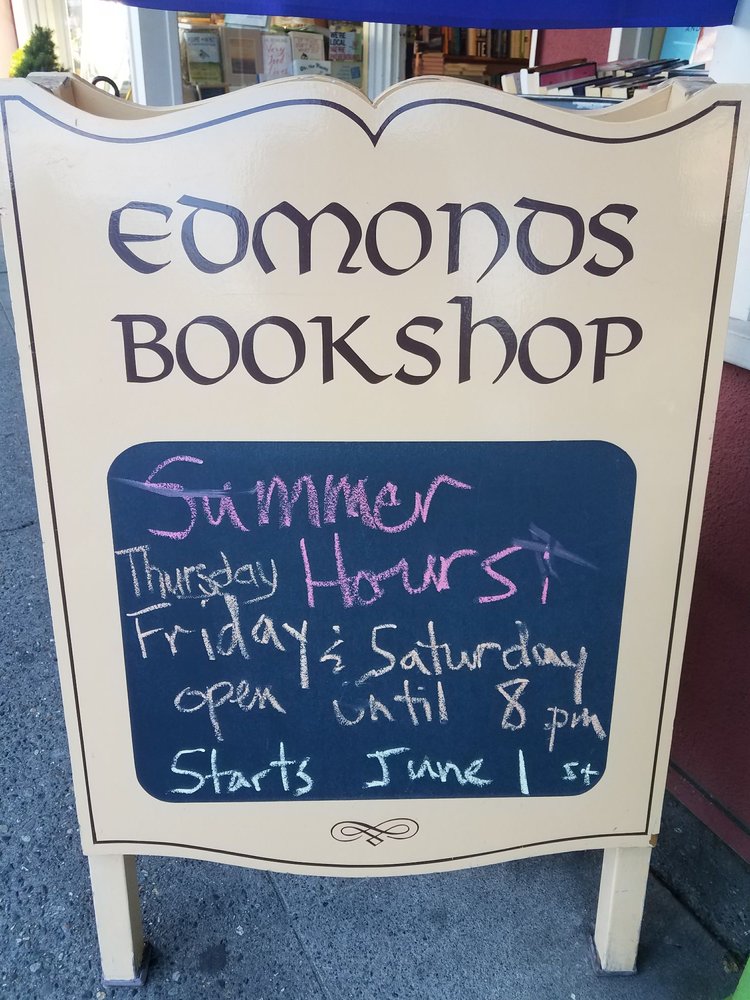 EDMONDS
BOOKSHOP
Summer
Hours!
Thursday
Friday & Saturday
open until 8 pm
Starts June 1st